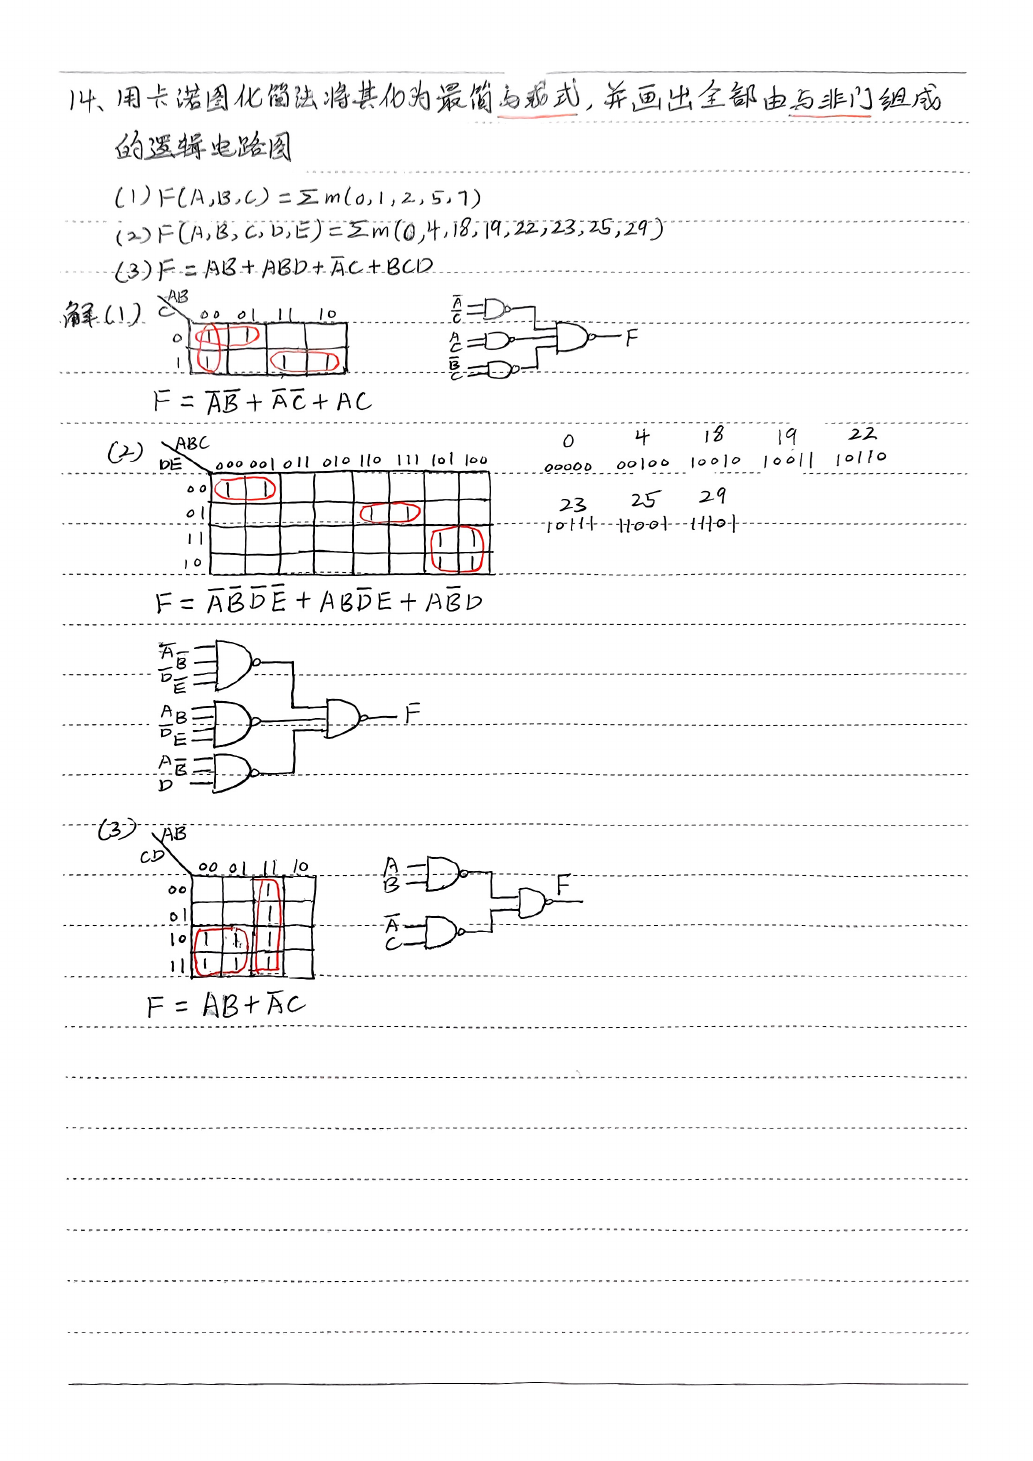 14、用卡诺图化简法将其化为最简与或式，并画出全部由与非门组成
的逻辑电路图
(1) F(A,B,C) = Σm(0,1,2,5,7)
(2) F(A,B,C,D,E) = Σm(0,4,18,19,22,23,25,29)
(3) F = AB + ABD + A̅C + BCD
解(1)
AB
C
00 01 11 10
0 1 1
1 1 1 1
F = A̅B̅ + A̅C̅ + AC
A̅
C̅
A
C
B̅
C
F
(2)
ABC
DE
000 001 011 010 110 111 101 100
00 1 1
01 1 1
11 1 1
10 1 1
0 4 18 19 22
00000 00100 10010 10011 10110
23 25 29
10111 11001 11101
F = A̅B̅D̅E̅ + ABD̅E + AB̅D
A̅
B̅
D̅
E̅
A
B
D̅
E
A
B̅
D
F
(3)
AB
CD
00 01 11 10
00 1
01 1
10 1 1 1
11 1 1 1
A
B
A̅
C
F
F = AB + A̅C